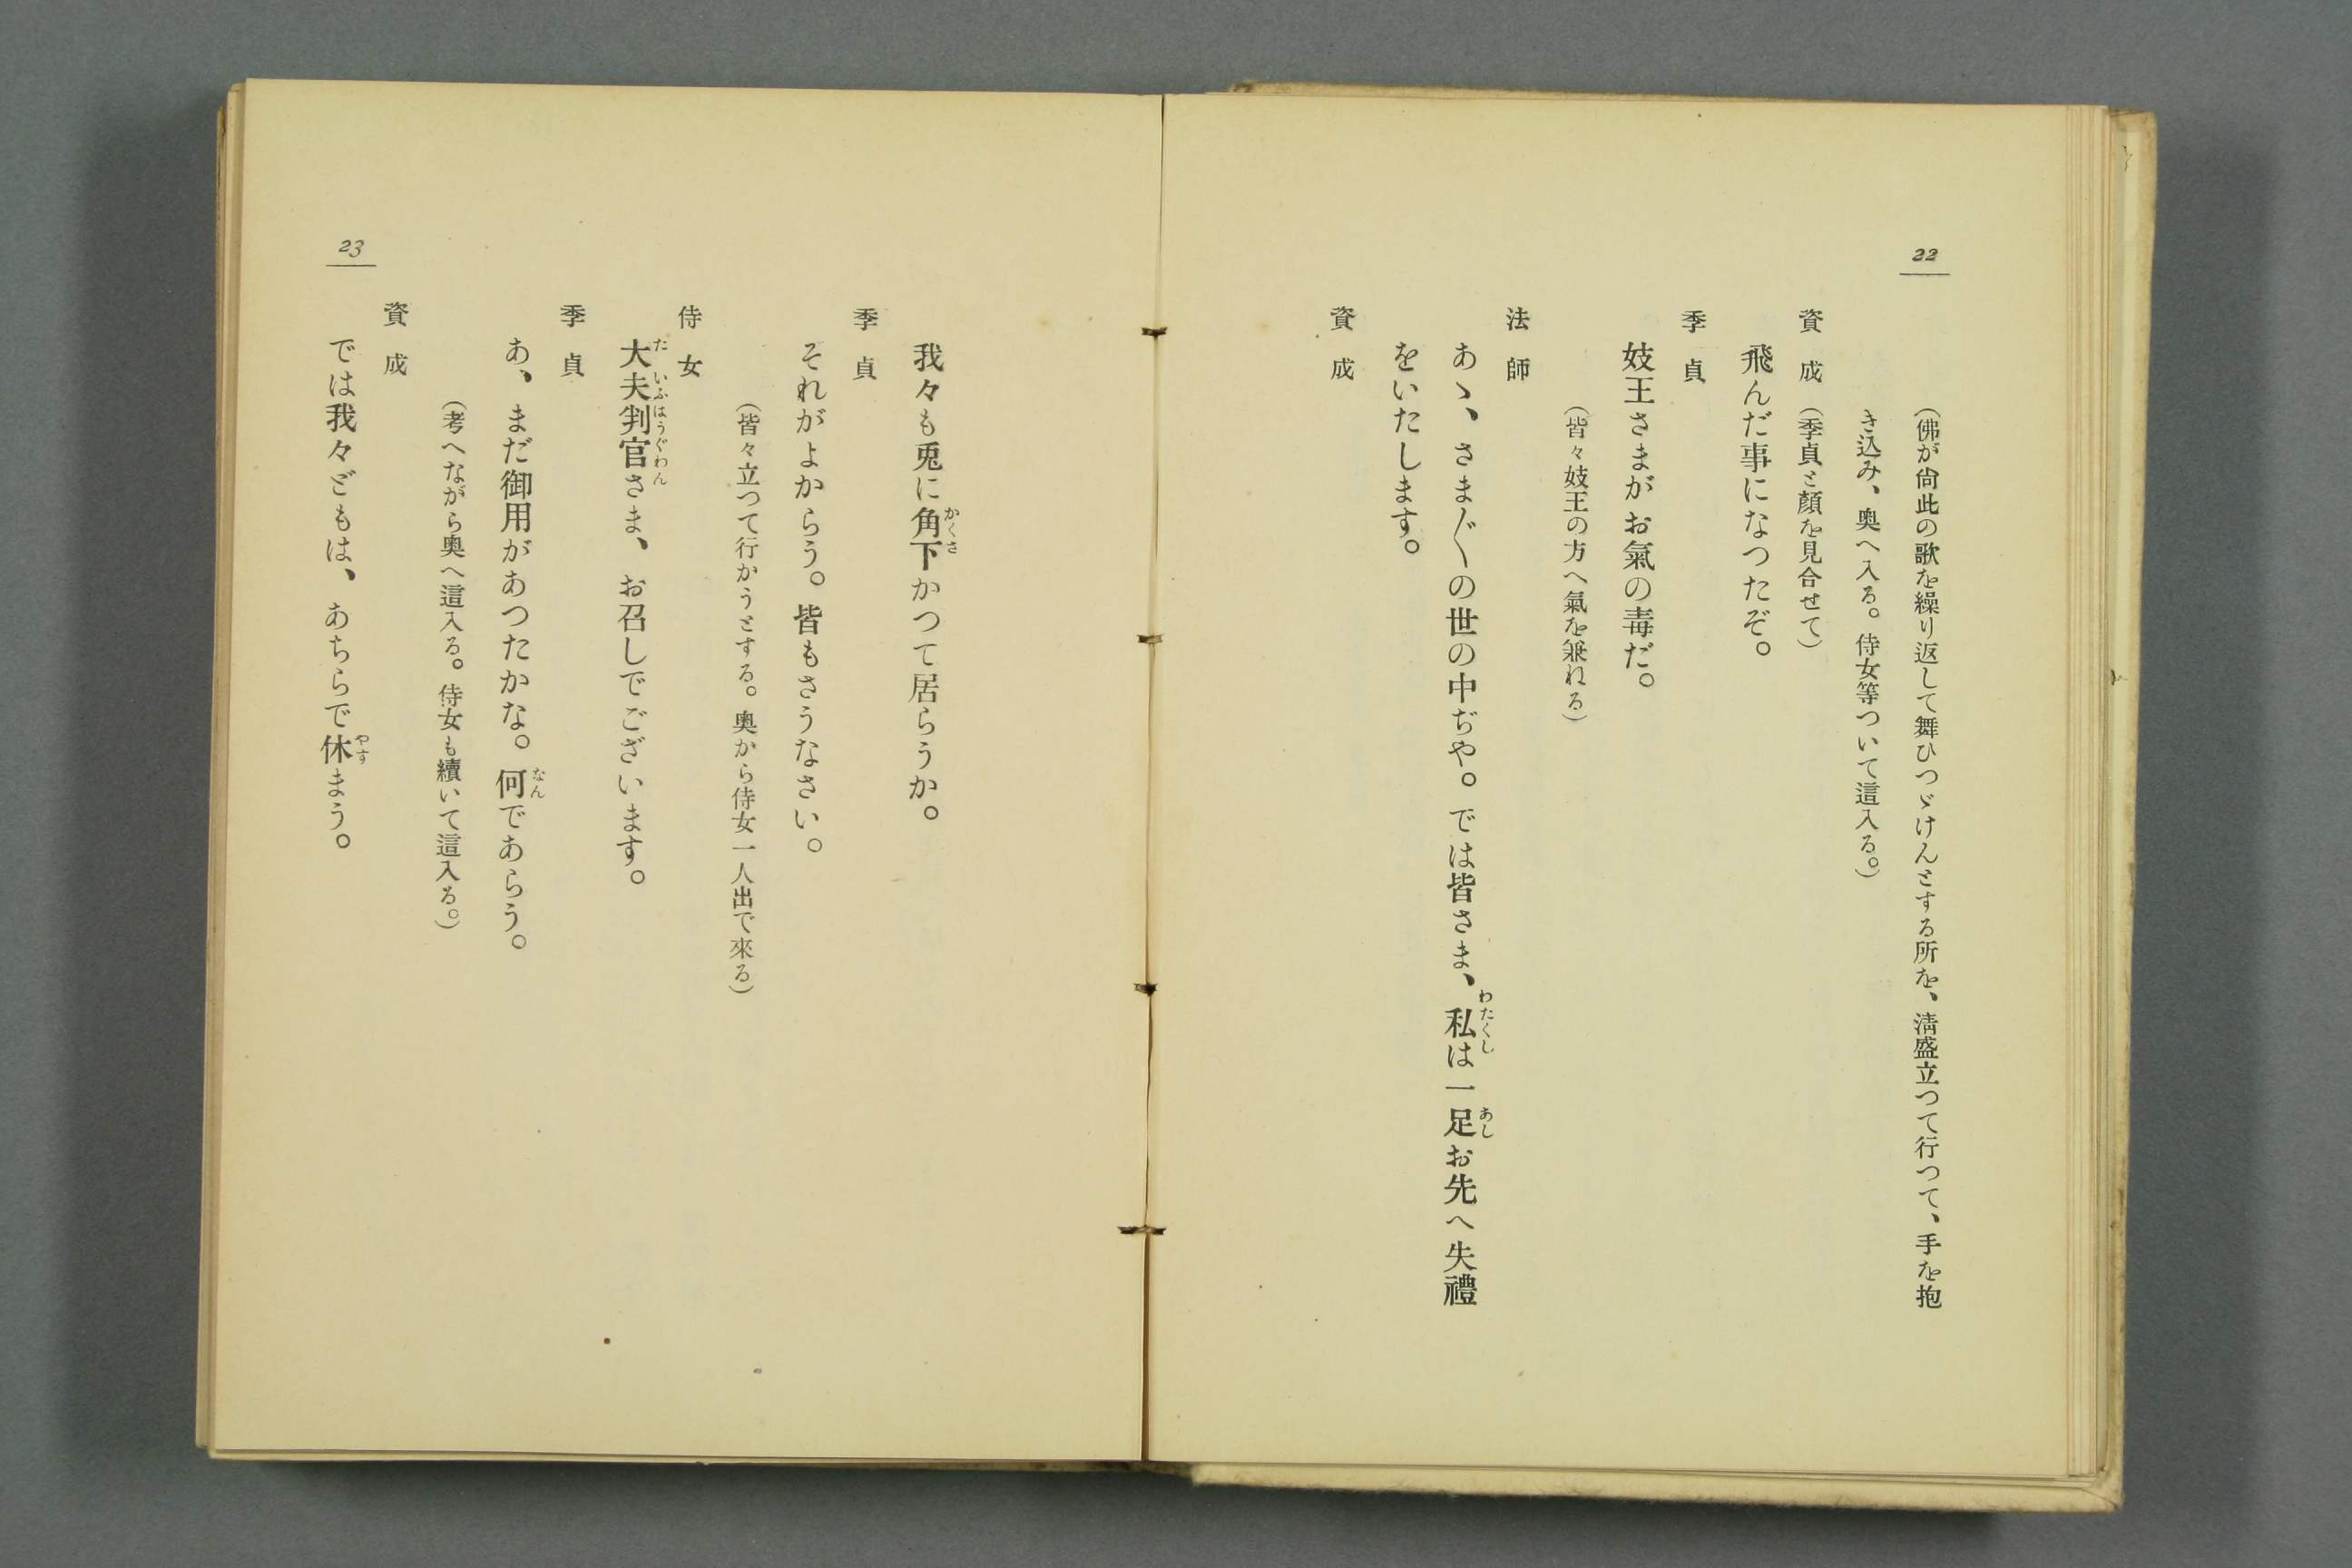 22
(佛が尙此の歌を繰り返して舞ひつゞけんとする所を、淸盛立つて行つて、手を抱
き込み、奧へ入る。侍女等ついて這入る。)
資成(季貞と顏を見合せて)
飛んだ事になつたぞ。
季貞
妓王さまがお氣の毒だ。
(皆々妓王の方へ氣を兼ねる)
法師
あゝ、さま〴〵の世の中ぢや。では皆さま、私は一足お先へ失禮
をいたします。
資成
23
我々も兎に角下かつて居らうか。
季貞
それがよからう。皆もさうなさい。
(皆々立つて行かうとする。奧から侍女一人出で來る)
侍女
大夫判官さま、お召しでございます。
季貞
あ、まだ御用があつたかな。何であらう。
(考へながら奧へ這入る。侍女も續いて這入る。)
資成
では我々どもは、あちらで休まう。